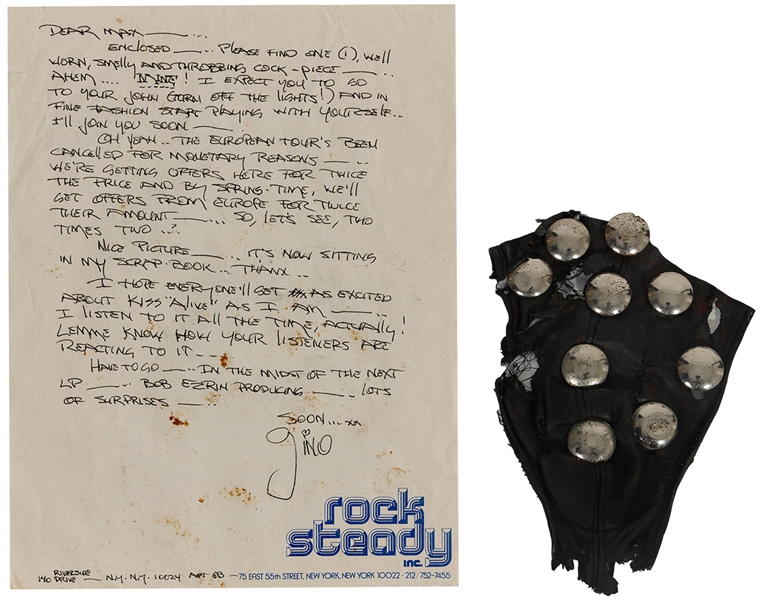 DEAR MAX —...
ENCLOSED —... PLEASE FIND ONE (1), WELL
WORN, SMELLY AND THROBBING COCK-PIECE —...
AHEM.... MINE! I EXPECT YOU TO GO
TO YOUR JOHN (TURN OFF THE LIGHTS!) AND IN
FINE FASHION START PLAYING WITH YOURSELF..
I'LL JOIN YOU SOON —...
OH YEAH.. THE EUROPEAN TOUR'S BEEN
CANCELLED FOR MONETARY REASONS —...
WE'RE GETTING OFFERS HERE FOR TWICE
THE PRICE AND BY SPRING-TIME, WE'LL
GET OFFERS FROM EUROPE FOR TWICE
THEIR AMOUNT —... SO, LET'S SEE, TWO
TIMES TWO ..?
NICE PICTURE —... IT'S NOW SITTING
IN MY SCRAP-BOOK... THANX..
I HOPE EVERYONE'LL GET AS EXCITED
ABOUT KISS 'ALIVE' AS I AM —...
I LISTEN TO IT ALL THE TIME, ACTUALLY!
LEMME KNOW HOW YOUR LISTENERS ARE
REACTING TO IT...
HAVE TO GO —... IN THE MIDST OF THE NEXT
LP —... BOB EZERIN PRODUCING —... LOTS
OF SURPRISES —...
SOON... XX
giNO
rock
steady
INC.
RIVERSIDE
140 DRIVE — N.Y. N.Y. 10024 APT 6B — 75 EAST 55th STREET, NEW YORK, NEW YORK 10022 · 212 / 752-7455